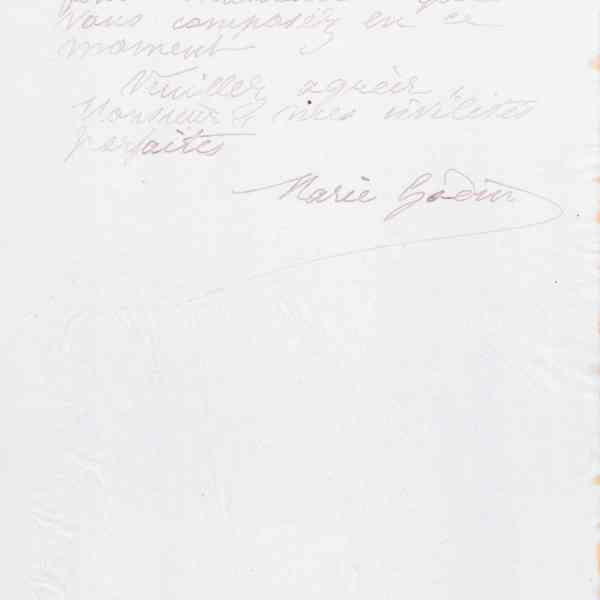 vous composez en ce
moment
Veuillez agréer,
Monsieur mes civilités
parfaites
Marie Godin